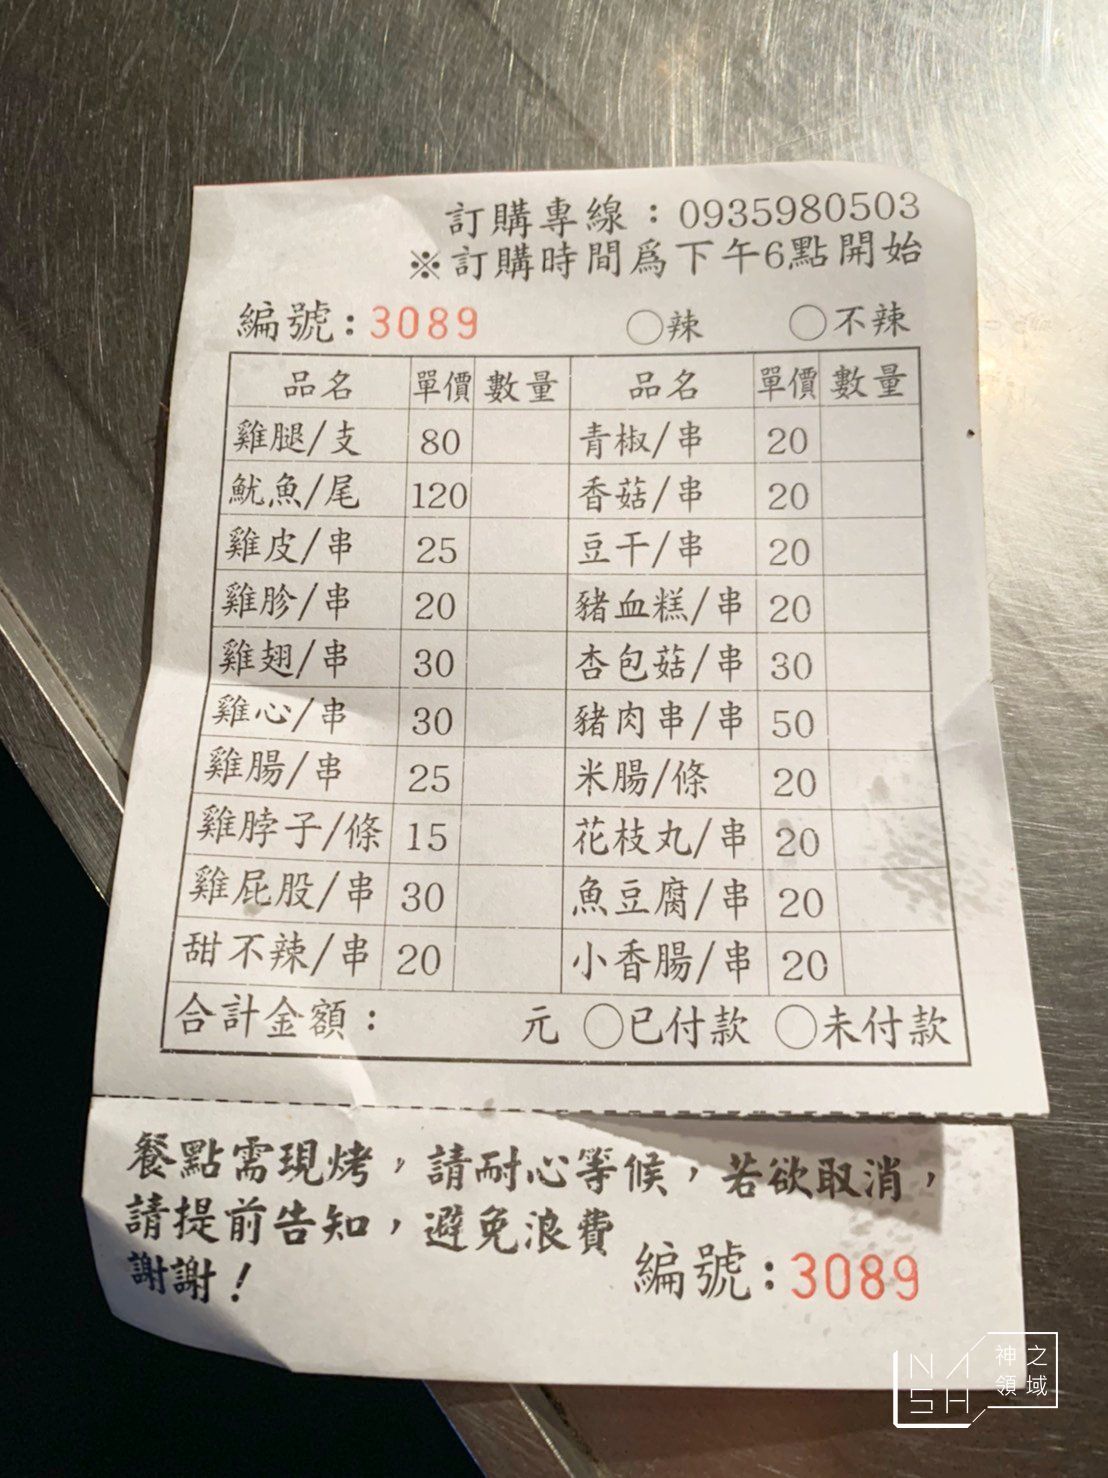 訂購專線：0935980503
※訂購時間為下午6點開始
編號:3089 ○辣 ○不辣
品名 單價 數量 品名 單價 數量
雞腿/支 80 青椒/串 20
魷魚/尾 120 香菇/串 20
雞皮/串 25 豆干/串 20
雞胗/串 20 豬血糕/串 20
雞翅/串 30 杏包菇/串 30
雞心/串 30 豬肉串/串 50
雞腸/串 25 米腸/條 20
雞脖子/條 15 花枝丸/串 20
雞屁股/串 30 魚豆腐/串 20
甜不辣/串 20 小香腸/串 20
合計金額： 元 ○已付款 ○未付款
餐點需現烤，請耐心等候，若欲取消，
請提前告知，避免浪費
謝謝！
編號:3089
NASH 神之領域